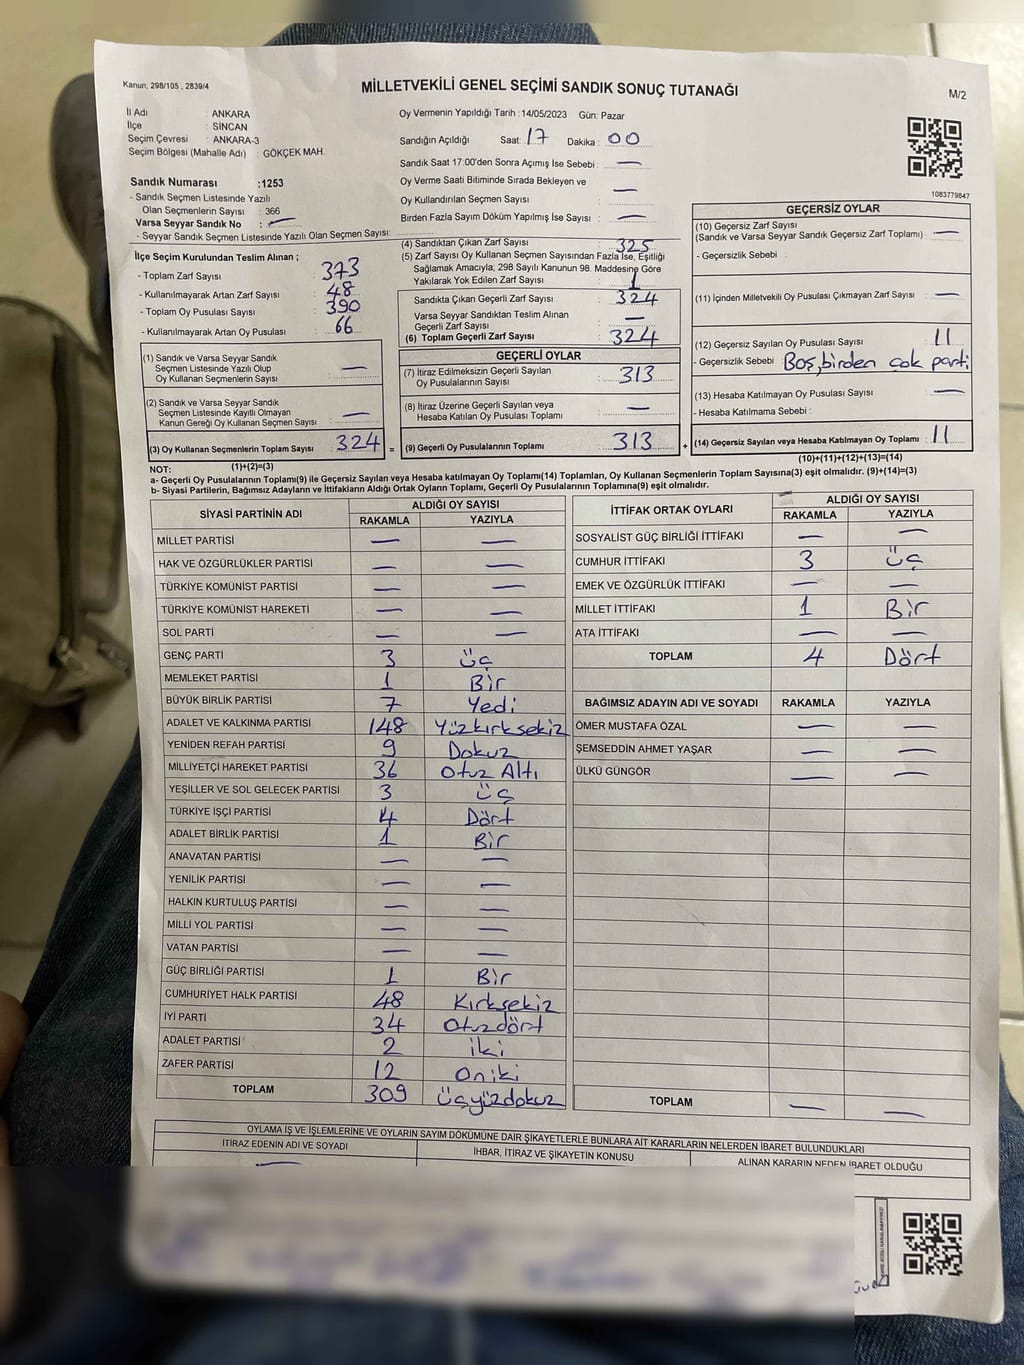 Kanun; 298/105 , 2839/4
MİLLETVEKİLİ GENEL SEÇİMİ SANDIK SONUÇ TUTANAĞI
M/2
İl Adı : ANKARA
İlçe : SİNCAN
Seçim Çevresi : ANKARA-3
Seçim Bölgesi (Mahalle Adı) : GÖKÇEK MAH.
Oy Vermenin Yapıldığı Tarih :14/05/2023 Gün: Pazar
Sandığın Açıldığı Saat: 17 Dakika: 00
Sandık Saat 17:00'den Sonra Açımış İse Sebebi : —
Oy Verme Saati Bitiminde Sırada Bekleyen ve
Oy Kullandırılan Seçmen Sayısı : —
Birden Fazla Sayım Döküm Yapılmış İse Sayısı : —
1083779847
Sandık Numarası :1253
- Sandık Seçmen Listesinde Yazılı
Olan Seçmenlerin Sayısı : 366
Varsa Seyyar Sandık No : —
- Seyyar Sandık Seçmen Listesinde Yazılı Olan Seçmen Sayısı:
İlçe Seçim Kurulundan Teslim Alınan ;
- Toplam Zarf Sayısı : 373
- Kullanılmayarak Artan Zarf Sayısı : 48
- Toplam Oy Pusulası Sayısı : 390
- Kullanılmayarak Artan Oy Pusulası : 66
(1) Sandık ve Varsa Seyyar Sandık
Seçmen Listesinde Yazılı Olup
Oy Kullanan Seçmenlerin Sayısı : —
(2) Sandık ve Varsa Seyyar Sandık
Seçmen Listesinde Kayıtlı Olmayan
Kanun Gereği Oy Kullanan Seçmen Sayısı : —
(3) Oy Kullanan Seçmenlerin Toplam Sayısı : 324 =
(1)+(2)=(3)
(4) Sandıktan Çıkan Zarf Sayısı : 325
(5) Zarf Sayısı Oy Kullanan Seçmen Sayısından Fazla İse, Eşitliği
Sağlamak Amacıyla; 298 Sayılı Kanunun 98. Maddesine Göre
Yakılarak Yok Edilen Zarf Sayısı : 1
Sandıkta Çıkan Geçerli Zarf Sayısı : 324
Varsa Seyyar Sandıktan Teslim Alınan
Geçerli Zarf Sayısı : —
(6) Toplam Geçerli Zarf Sayısı : 324
GEÇERLİ OYLAR
(7) İtiraz Edilmeksizin Geçerli Sayılan
Oy Pusulalarının Sayısı : 313
(8) İtiraz Üzerine Geçerli Sayılan veya
Hesaba Katılan Oy Pusulası Toplamı : —
(9) Geçerli Oy Pusulalarının Toplamı : 313 +
GEÇERSİZ OYLAR
(10) Geçersiz Zarf Sayısı :
(Sandık ve Varsa Seyyar Sandık Geçersiz Zarf Toplamı) —
- Geçersizlik Sebebi :
(11) İçinden Milletvekili Oy Pusulası Çıkmayan Zarf Sayısı : —
(12) Geçersiz Sayılan Oy Pusulası Sayısı : 11
- Geçersizlik Sebebi : Boş, birden çok parti
(13) Hesaba Katılmayan Oy Pusulası Sayısı : —
- Hesaba Katılmama Sebebi :
(14) Geçersiz Sayılan veya Hesaba Katılmayan Oy Toplamı : 11
(10)+(11)+(12)+(13)=(14)
NOT:
a- Geçerli Oy Pusulalarının Toplamı(9) ile Geçersiz Sayılan veya Hesaba katılmayan Oy Toplamı(14) Toplamları, Oy Kullanan Seçmenlerin Toplam Sayısına(3) eşit olmalıdır. (9)+(14)=(3)
b- Siyasi Partilerin, Bağımsız Adayların ve İttifakların Aldığı Ortak Oyların Toplamı, Geçerli Oy Pusulalarının Toplamına(9) eşit olmalıdır.
SİYASİ PARTİNİN ADI ALDIĞI OY SAYISI
RAKAMLA YAZIYLA
MİLLET PARTİSİ — —
HAK VE ÖZGÜRLÜKLER PARTİSİ — —
TÜRKİYE KOMÜNİST PARTİSİ — —
TÜRKİYE KOMÜNİST HAREKETİ — —
SOL PARTİ — —
GENÇ PARTİ 3 üç
MEMLEKET PARTİSİ 1 Bir
BÜYÜK BİRLİK PARTİSİ 7 Yedi
ADALET VE KALKINMA PARTİSİ 148 Yüzkırksekiz
YENİDEN REFAH PARTİSİ 9 Dokuz
MİLLİYETÇİ HAREKET PARTİSİ 36 Otuz Altı
YEŞİLLER VE SOL GELECEK PARTİSİ 3 üç
TÜRKİYE İŞÇİ PARTİSİ 4 Dört
ADALET BİRLİK PARTİSİ 1 Bir
ANAVATAN PARTİSİ — —
YENİLİK PARTİSİ — —
HALKIN KURTULUŞ PARTİSİ — —
MİLLİ YOL PARTİSİ — —
VATAN PARTİSİ — —
GÜÇ BİRLİĞİ PARTİSİ 1 Bir
CUMHURİYET HALK PARTİSİ 48 Kırksekiz
İYİ PARTİ 34 Otuzdört
ADALET PARTİSİ 2 iki
ZAFER PARTİSİ 12 Oniki
TOPLAM 309 üçyüzdokuz
İTTİFAK ORTAK OYLARI ALDIĞI OY SAYISI
RAKAMLA YAZIYLA
SOSYALİST GÜÇ BİRLİĞİ İTTİFAKI — —
CUMHUR İTTİFAKI 3 üç
EMEK VE ÖZGÜRLÜK İTTİFAKI — —
MİLLET İTTİFAKI 1 Bir
ATA İTTİFAKI — —
TOPLAM 4 Dört
BAĞIMSIZ ADAYIN ADI VE SOYADI RAKAMLA YAZIYLA
ÖMER MUSTAFA ÖZAL — —
ŞEMSEDDİN AHMET YAŞAR — —
ÜLKÜ GÜNGÖR — —
TOPLAM — —
OYLAMA İŞ VE İŞLEMLERİNE VE OYLARIN SAYIM DÖKÜMÜNE DAİR ŞİKAYETLERLE BUNLARA AİT KARARLARIN NELERDEN İBARET BULUNDUKLARI
İTİRAZ EDENİN ADI VE SOYADI İHBAR, İTİRAZ VE ŞİKAYETİN KONUSU ALINAN KARARIN NEDEN İBARET OLDUĞU
—